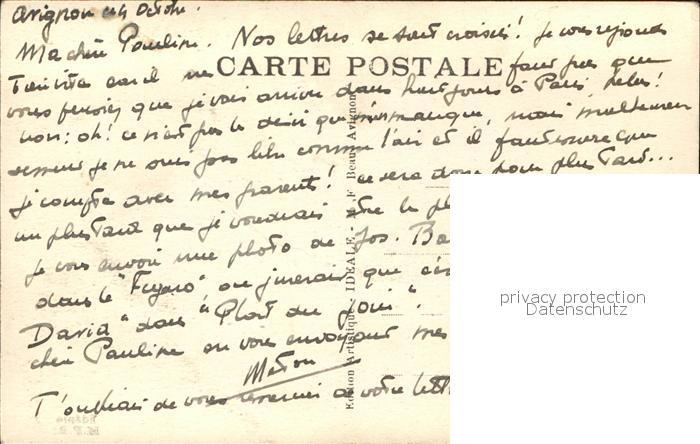 Avignon le 4 Octobre.
Ma chère Pauline. Nos lettres se sont croisées! Je vous réponds
CARTE POSTALE
Très vite car il ne faut pas que
vous pensiez que je vais arriver dans huit jours à Paris, hélas!
non; oh! ce n'est pas le désir qui m'en manque, mais malheureu
sement je ne suis pas libre comme l'air et il faut encore que
je compte avec mes parents! ce sera donc pour plus tard...
un plus tard que je voudrais être le pl
je vous envoie une photo de Jos. Ba
dans le "Figaro" où j'
que c'es
David" dans "
".
chère Pauline en vous envoyant mes
Meton
J'oubliais de vous
à votre lett
Edition Artistique - IDEALE - M. F. Beau, Avignon
privacy protection
Datenschutz